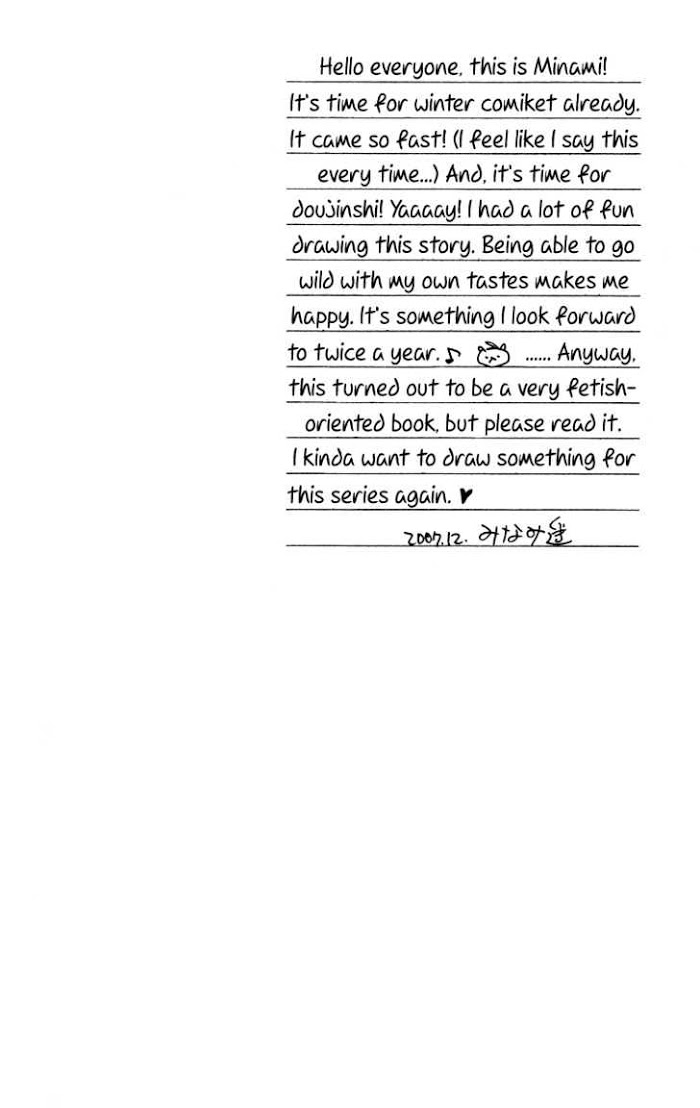 Hello everyone, this is Minami!
It's time for winter comiket already.
It came so fast! (I feel like I say this
every time...) And, it's time for
doujinshi! Yaaaay! I had a lot of fun
drawing this story. Being able to go
wild with my own tastes makes me
happy. It's something I look forward
to twice a year.♪ ...... Anyway,
this turned out to be a very fetish-
oriented book, but please read it.
I kinda want to draw something for
this series again. ♥
2007.12. みなみ遥